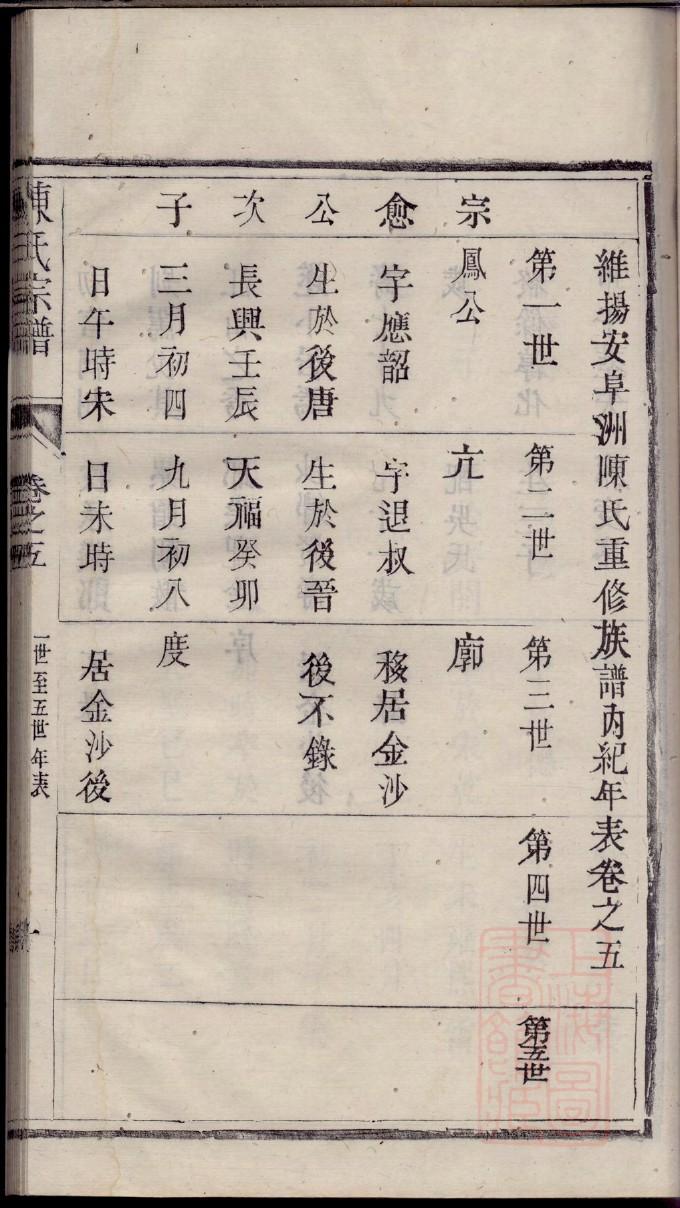 維揚安阜洲陳氏重修族譜內紀年表卷之五
第一世
第二世
第三世
第四世
第五世
宗愈公次子
鳳公
字應韶
生於後唐
長興壬辰
三月初四
日午時宋
亢
字退叔
生於後晉
天福癸卯
九月初八
日未時
廓
移居金沙
後不錄
度
居金沙後
陳氏宗譜
卷之五
一世至五世年表
一